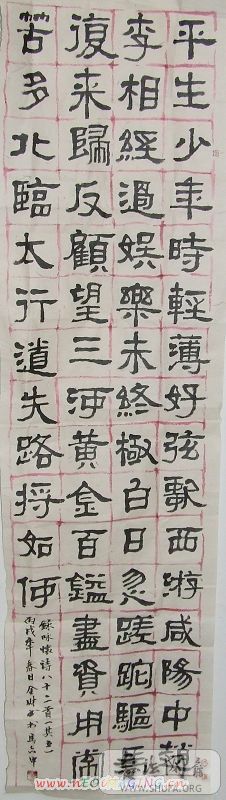 平生少年時輕薄好弦歌西游咸陽中趙
李相經過娱樂未終極白日忽蹉跎驅馬
復来歸反顧望三河黄金百鎰盡資用常
苦多北臨太行道失路将如何
錄咏懷诗八十二首(其五)
丙戌年春日
WWW.SHUFA.ORG